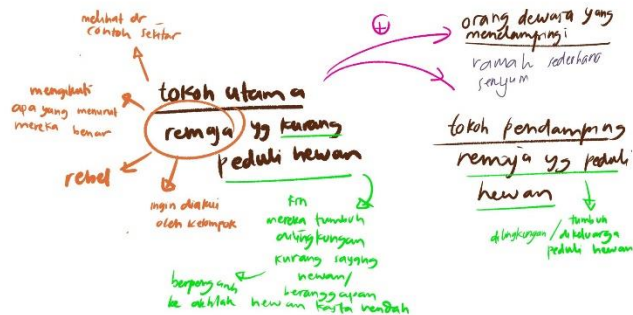 melihat dr
contoh sekitar
mengikuti
apa yang menurut
mereka benar
rebel
ingin diakui
oleh kelompok
tokoh utama
remaja yg kurang
peduli hewan
krn
mereka tumbuh
dilingkungan
kurang sayang
hewan/
beranggapan
hewan kasta rendah
berpengaruh
ke akhlak
+
orang dewasa yang
mendampingi
ramah sederhana
senyum
tokoh pendamping
remaja yg peduli
hewan
tumbuh
dilingkungan / dikeluarga
peduli hewan